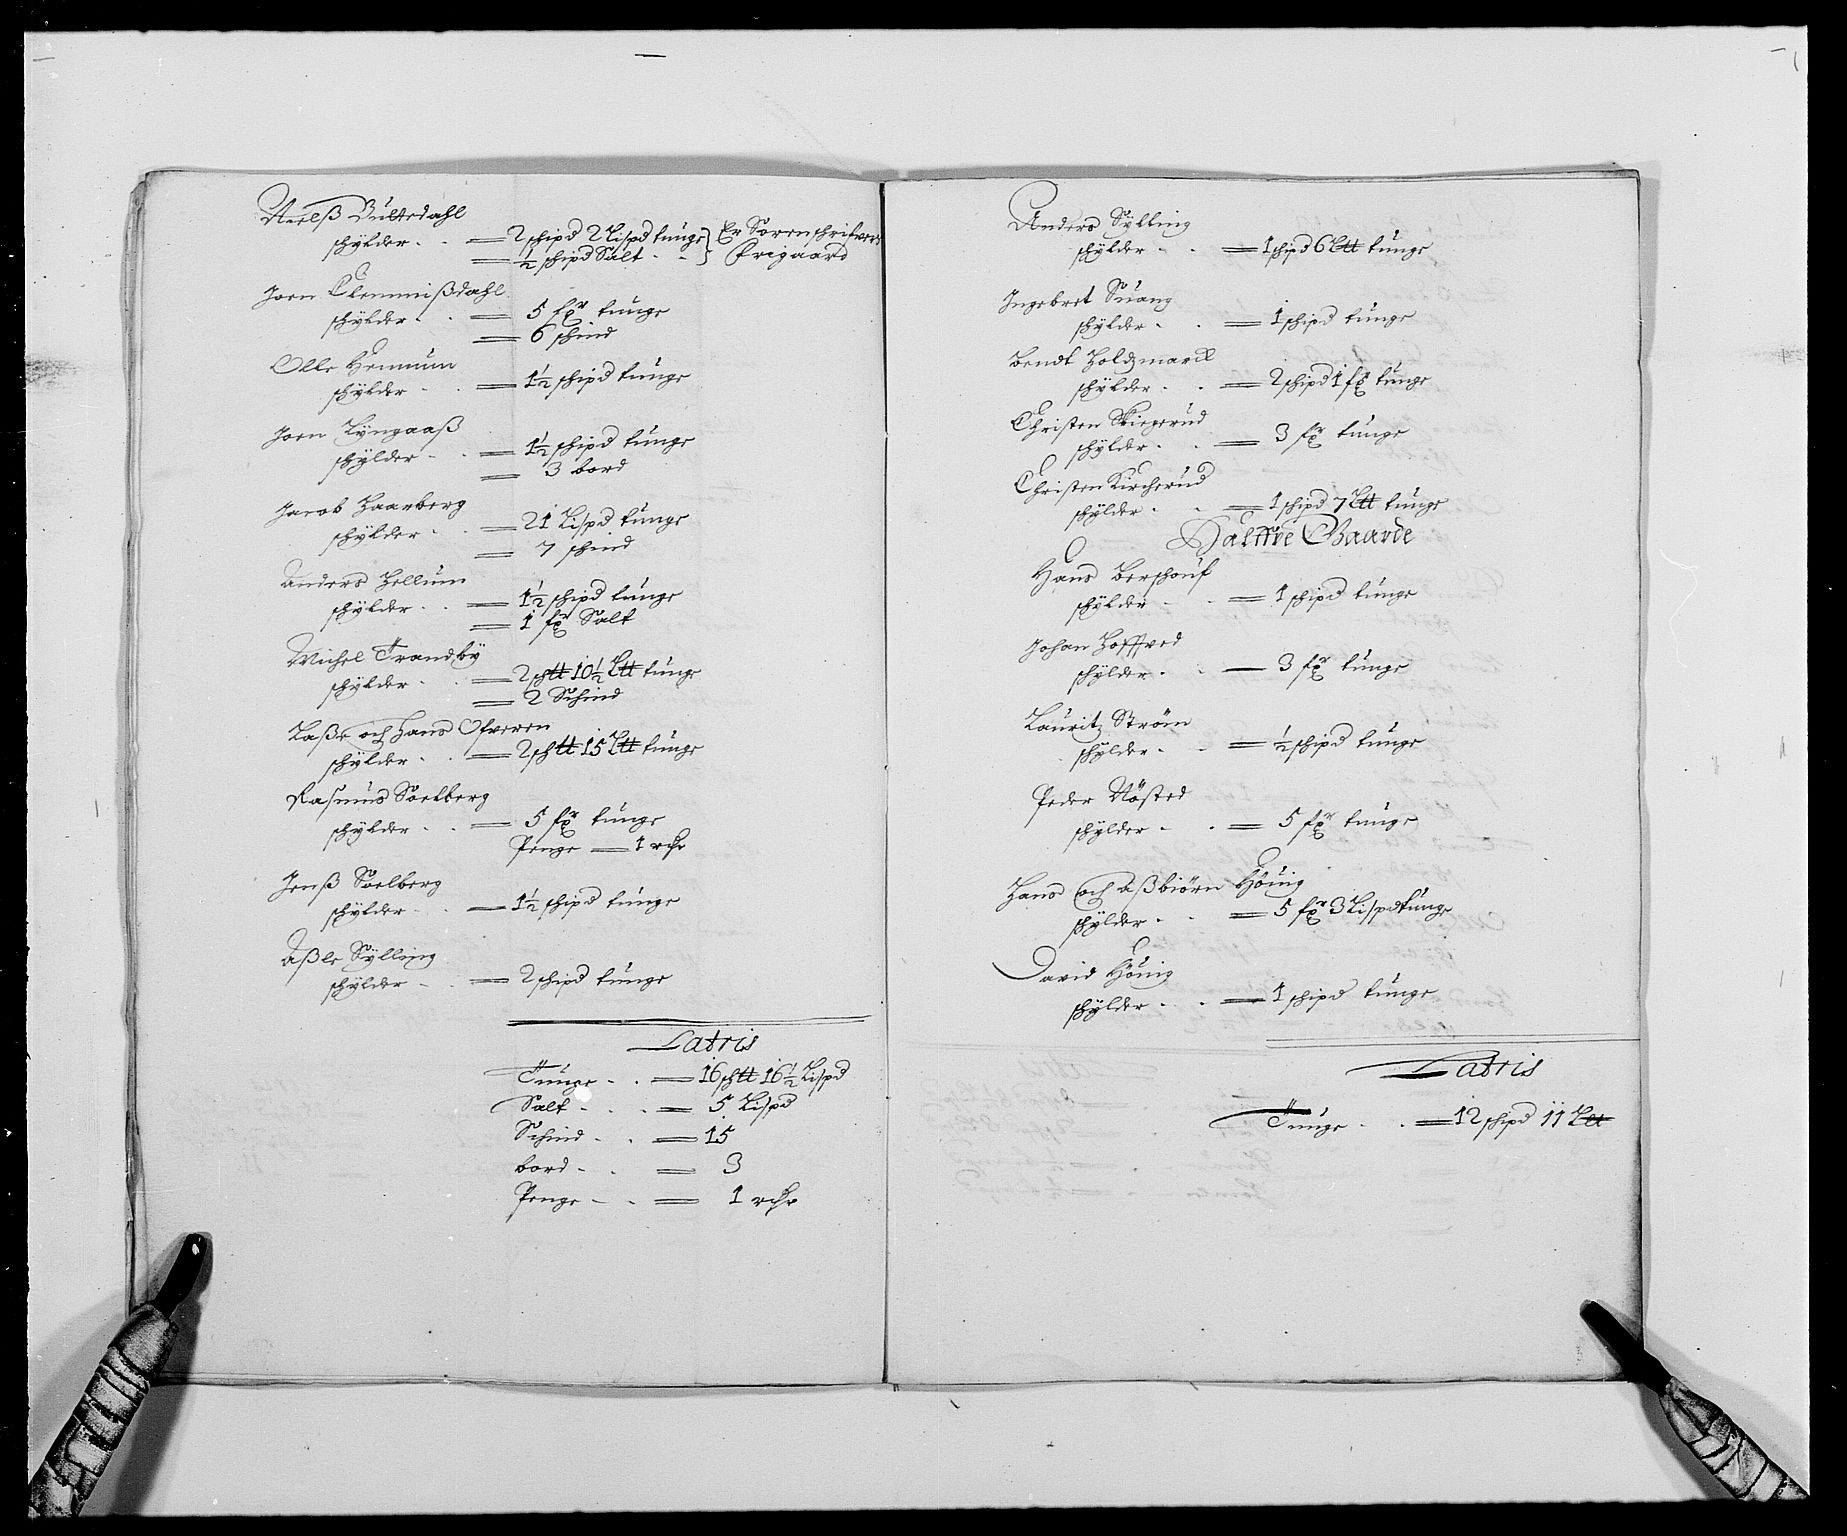 Nielß Bultedahl
schylder - - = 2 schipd 2 Lispd tunge } Er Sorenschrifvers
= ½ schipd Salt - - } Frigaard
Joen Clemmißdahl
schylder - - = 5 fxr tunge
= 6 schind
Olle Hennum
schylder - - = 1½ schipd tunge
Joen Lyngaaß
schylder - - = 1½ schipd tunge
= 3 bord
Jacob Haarberg
schylder - - = 21 Lispd tunge
= 7 schind
Anders Hellum
schylder - - = 1½ schipd tunge
= 1 fxr Salt
Michel Trandby
schylder - - = 2 schtt 10½ Ltt tunge
= 2 Schind
Laße och Hans Ofveren
schylder - - = 2 schtt 15 Ltt tunge
Rasmus Soelberg
schylder - - = 5 fxr tunge
Penge = 1 rdr
Jenß Soelberg
schylder - - = 1½ schipd tunge
Aßle Sylling
schylder - - = 2 schipd tunge
Latris
Tunge - - = 16 schtt 16½ Lispd
Salt - - - = 5 Lispd
Schind - - = 15
bord - - = 3
Penge - - = 1 rdr
Anders Sylling
schylder - - = 1 schipd 6 Ltt tunge
Ingebret Suang
schylder - - = 1 schipd tunge
Bendt Holdzmarck
schylder - - = 2 schipd 1 fxr tunge
Christen Skiegerud
schylder - - = 3 fxr tunge
Christen Kircherud
schylder - - = 1 schipd 7 Ltt tunge
Halffve Gaarde
Hans Berschouf
schylder - - = 1 schipd tunge
Johan Hoffved
schylder - - = 3 fxr tunge
Lauritz Ström
schylder - - = ½ schipd tunge
Peder Nösted
schylder - - = 5 fxr tunge
Hans och Aßbiörn Hönig
schylder - - = 5 fxr 3 Lispd tunge
David Hönig
schylder - - = 1 schipd tunge
Latris
Tunge - - = 12 schipd 11 Ltt